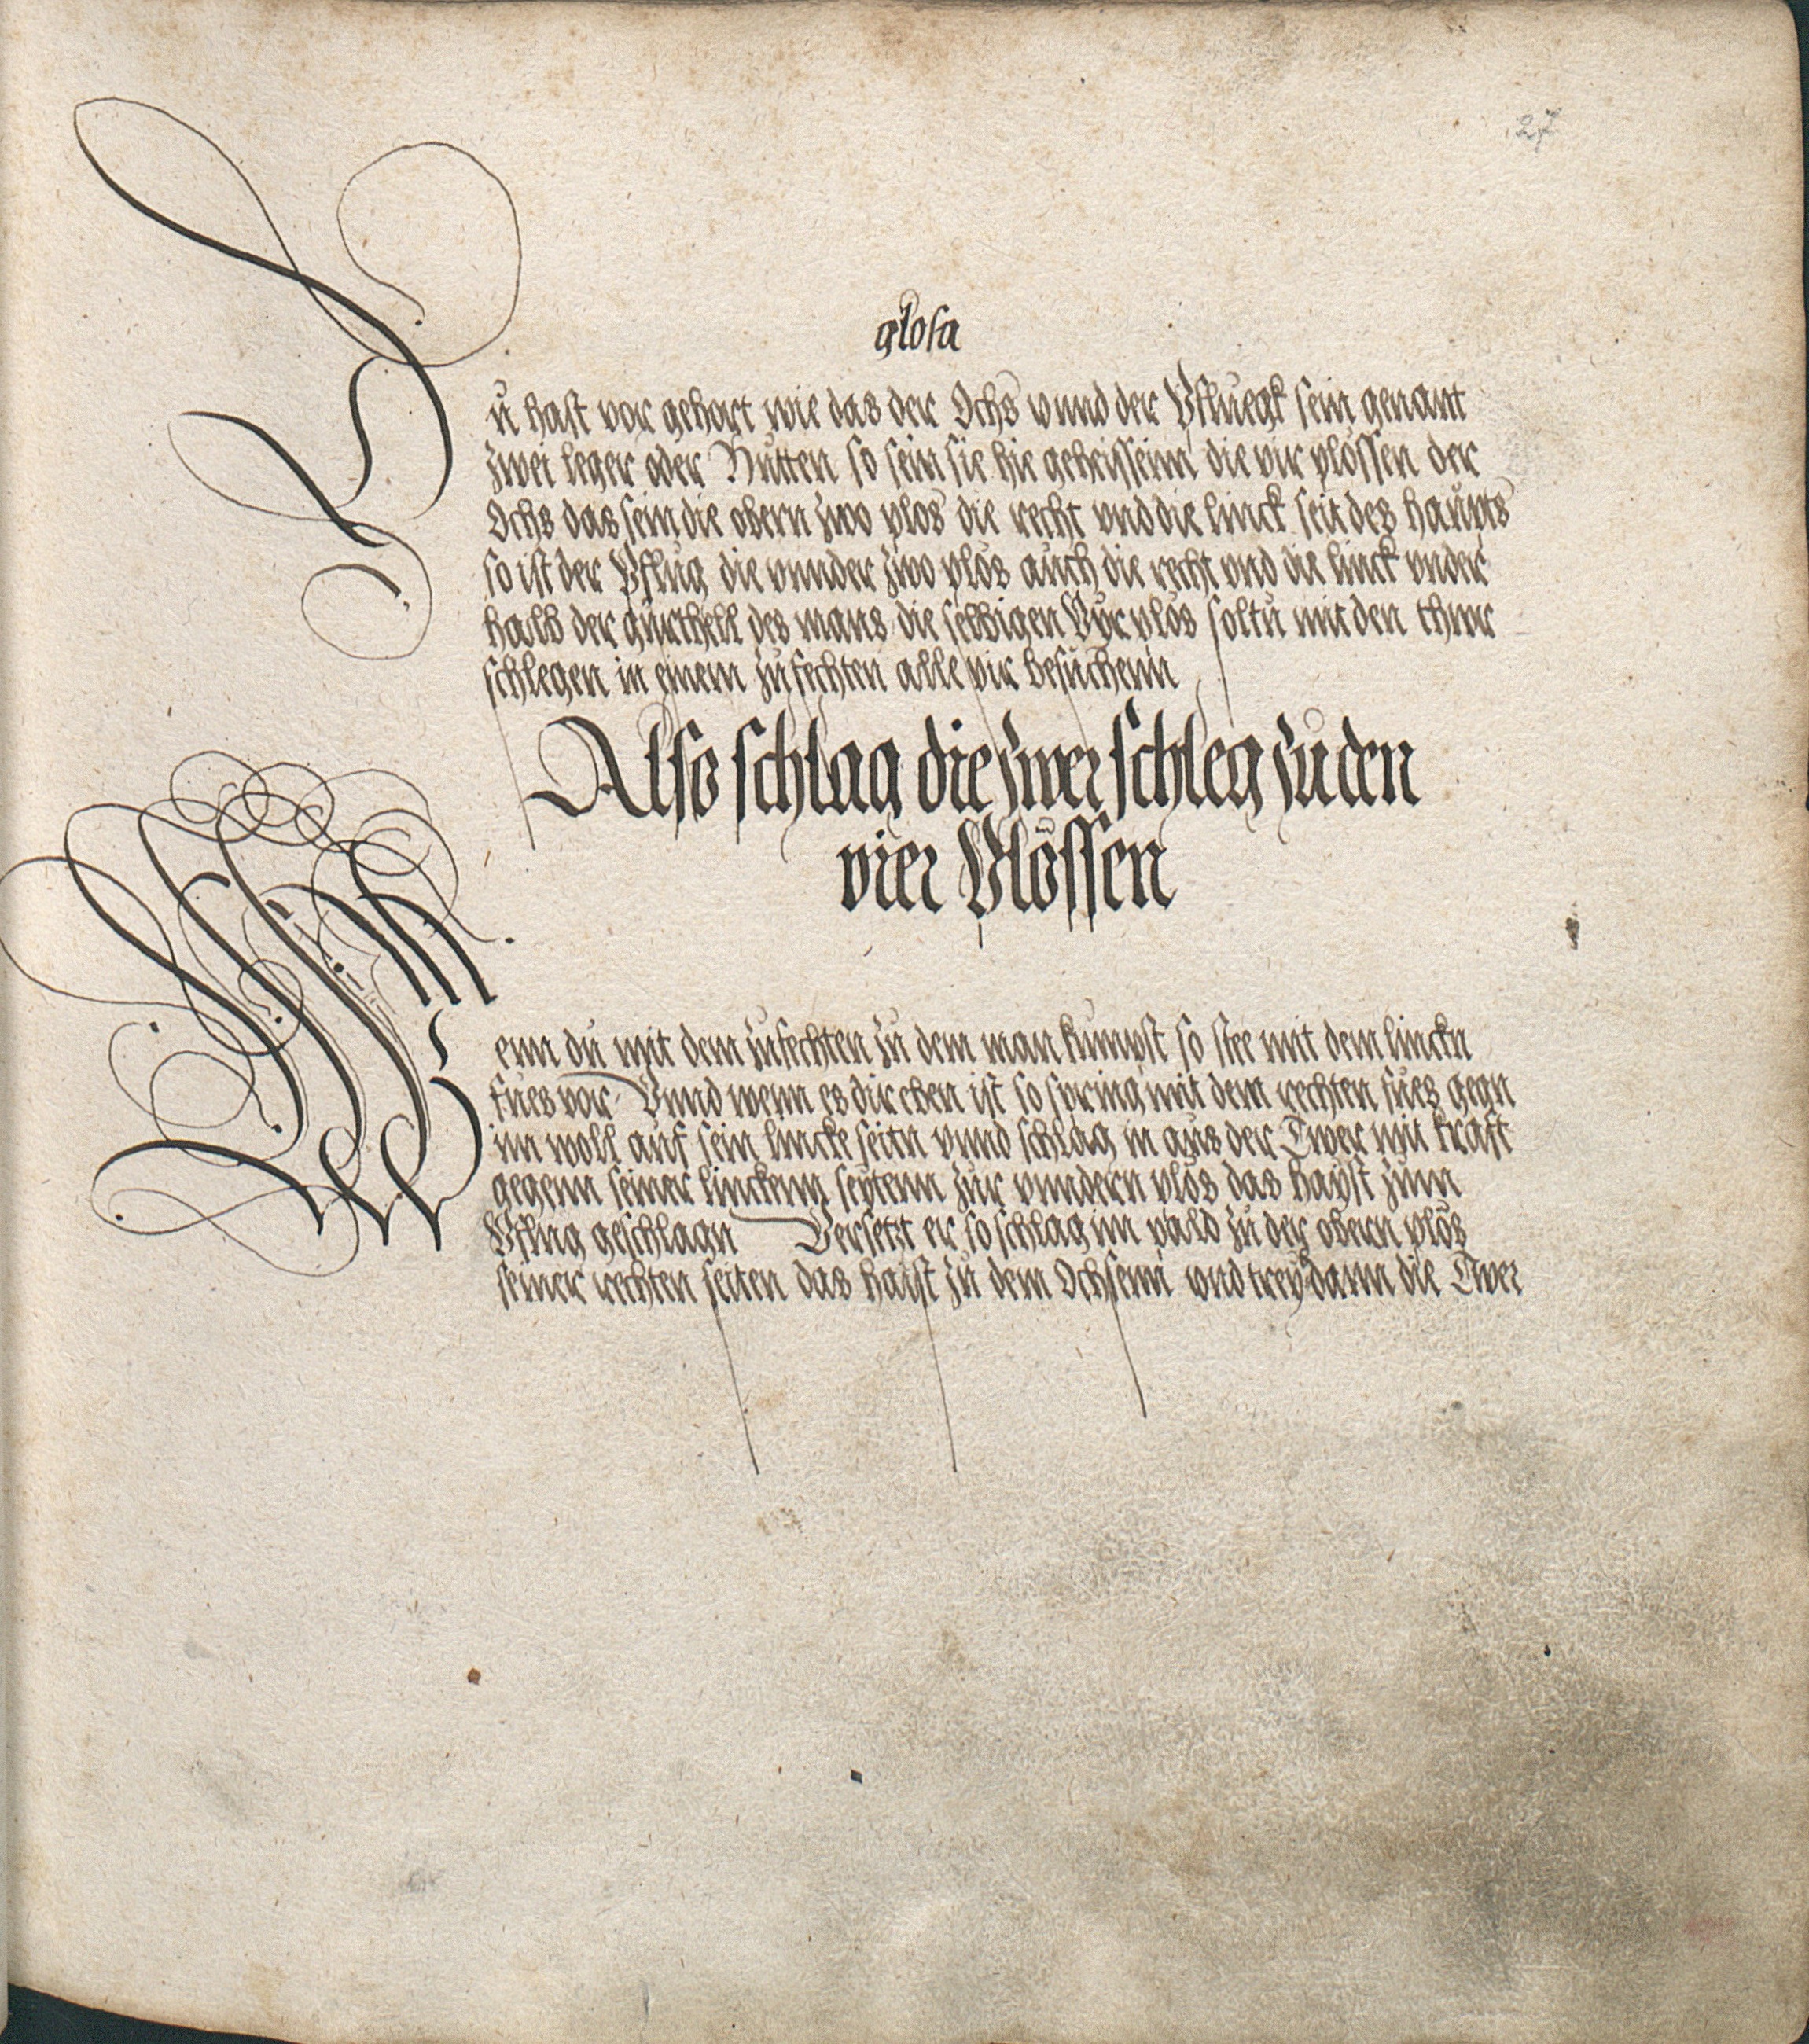 27
glosa
Du hast vor gehort wie das der Ochs vnnd der Pfluegk sein genant
zwei leger oder Hutten so sein sie hie geheissenn die vir plossen der
Ochs das sein die obern zwo plos die recht vnd die linck seit des haupts
so ist der Pflug die vnnder zwo plos auch die recht vnd die linck vnder
halb der gurthell des mans die selbigen Vyr plos soltu mit den thwr
schlegen in einem zufechten alle vir besuchenn
Also schlag die zwer schleg zu den
vier Plössen
Wenn du mit dem zufechten zu dem man kumpst so stee mit dem linckn
fues vor Vnnd wenn es dir eben ist so spring mit dem rechten fues gegn
im woll auf sein lincke seitn vnnd schlag in aus der Twer mit kraft
gegenn seiner linckenn seytenn zur vnndern plös das hayst zum
Pflug geschlagn Versetzt er so schlag im pald zu der obern plös
seiner rechten seiten das haist zu dem Ochsenn vnd trey dann die Twer